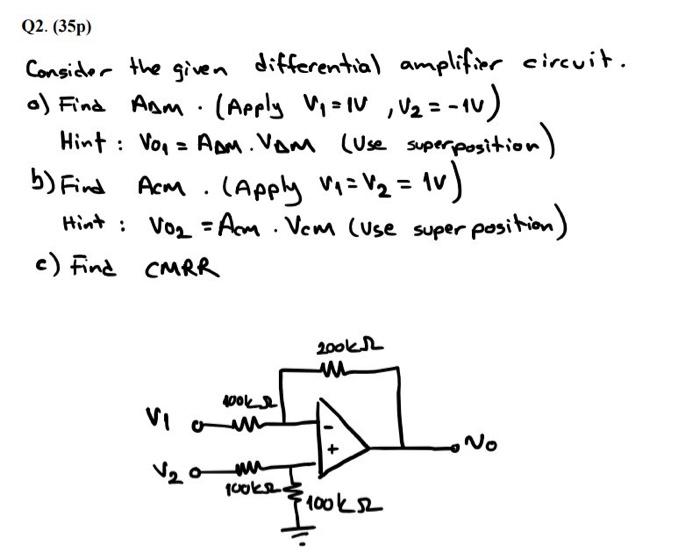 Q2. (35p)
Consider the given differential amplifier circuit.
a) Find ADM . (Apply V1 = 1V , V2 = -1V)
Hint : VO1 = ADM . VDM (Use superposition)
b) Find Acm . (Apply V1 = V2 = 1V)
Hint : VO2 = Acm . Vcm (Use superposition)
c) Find CMRR
200kΩ
100kΩ
V1
-
+
Vo
V2
100kΩ
100kΩ